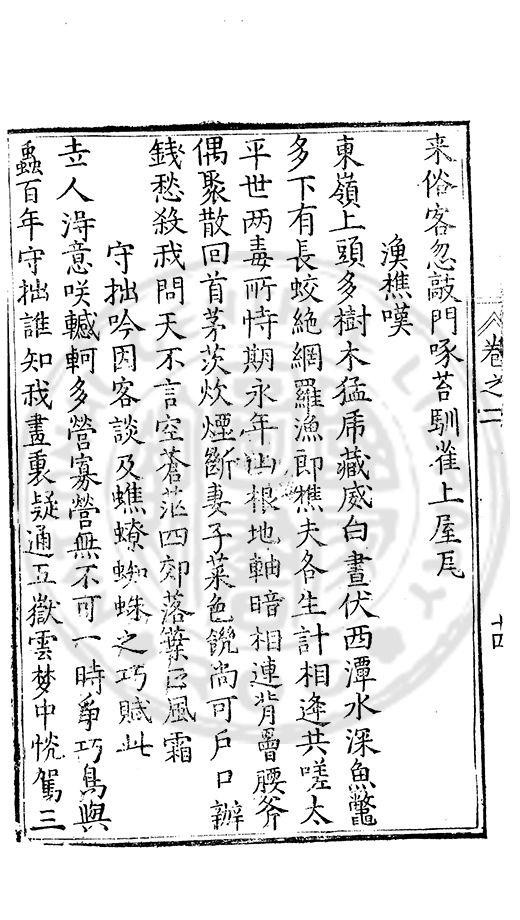 卷之二
十四
来俗客忽敲門啄苔馴雀上屋瓦
漁樵嘆
東嶺上頭多樹木猛虎藏威白晝伏西潭水深魚鱉
多下有長蛟絶網羅漁郎樵夫各生計相逢共嗟太
平世两毒所恃期永年山根地軸暗相連背罾腰斧
偶聚散回首茅茨炊煙斷妻子菜色饑尚可户口辦
錢愁殺我問天不言空蒼茫四郊落葉巨風霜
守拙吟因客談及蟭蟟蜘蛛之巧賦此
士人淂意咲轗軻多營寡營無不可一時爭巧鳥與
蟲百年守拙誰知我晝裏疑通五嶽雲梦中恍駕三